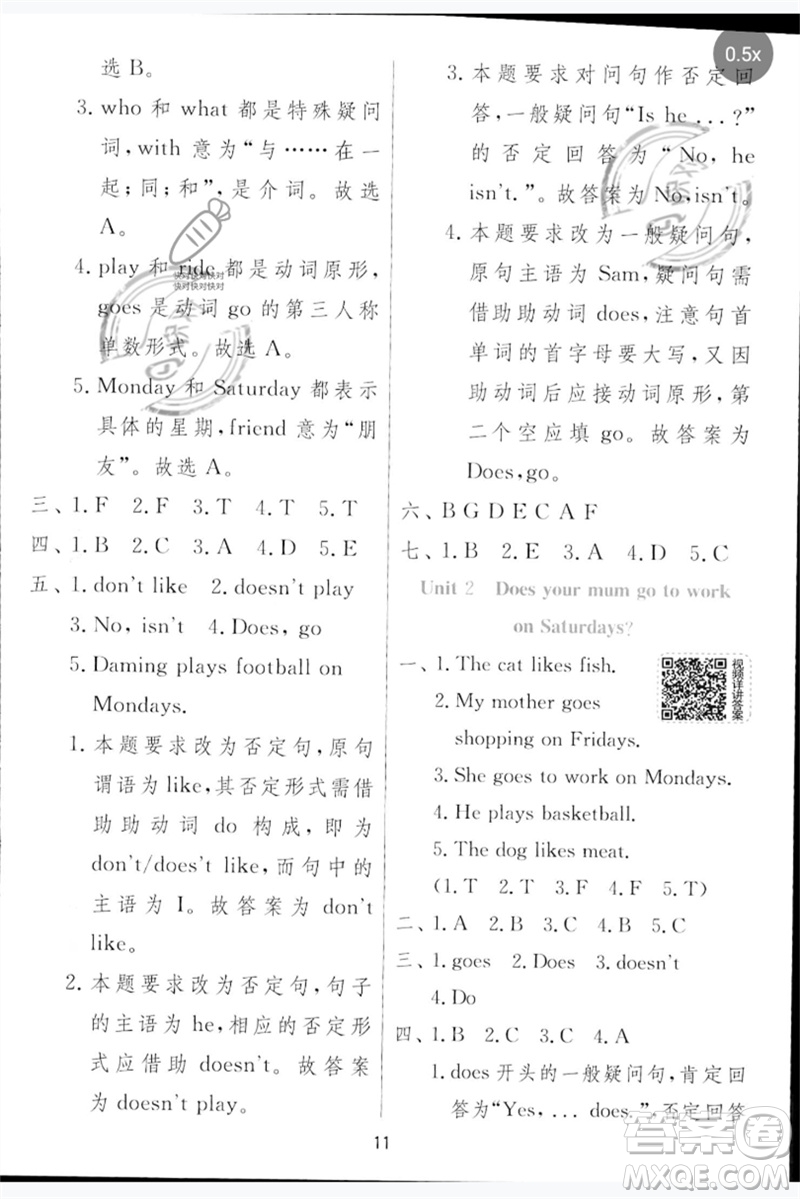 选 B。
3. who 和 what 都是特殊疑问
词，with 意为“与……在一
起；同；和”，是介词。故选
A。
4. play 和 ride 都是动词原形，
goes 是动词 go 的第三人称
单数形式。故选 A。
5. Monday 和 Saturday 都表示
具体的星期，friend 意为“朋
友”。故选 A。
三、1. F 2. F 3. T 4. T 5. T
四、1. B 2. C 3. A 4. D 5. E
五、1. don't like 2. doesn't play
3. No, isn't 4. Does, go
5. Daming plays football on
Mondays.
1. 本题要求改为否定句，原句
谓语为 like，其否定形式需借
助助动词 do 构成，即为
don't/does't like，而句中的
主语为 I。故答案为 don't
like。
2. 本题要求改为否定句，句子
的主语为 he，相应的否定形
式应借助 doesn't。故答案
为 doesn't play.
3. 本题要求对问句作否定回
答，一般疑问句“Is he ...?”
的否定回答为“No, he
isn't.”。故答案为 No, isn't。
4. 本题要求改为一般疑问句，
原句主语为 Sam，疑问句需
借助助动词 does，注意句首
单词的首字母要大写，又因
助动词后应接动词原形，第
二个空应填 go。故答案为
Does, go。
六、B G D E C A F
七、1. B 2. E 3. A 4. D 5. C
Unit 2 Does your mum go to work
on Saturdays?
一、1. The cat likes fish.
2. My mother goes
shopping on Fridays.
3. She goes to work on Mondays.
4. He plays basketball.
5. The dog likes meat.
(1. T 2. T 3. F 4. F 5. T)
二、1. A 2. B 3. C 4. B 5. C
三、1. goes 2. Does 3. doesn't
4. Do
四、1. B 2. C 3. C 4. A
1. does 开头的一般疑问句，肯定回
答为“Yes, ... does.”，否定回答
视频详讲答案
0.5x
快对快对快对
快对快对快对
11
答案圈
MXQE.COM